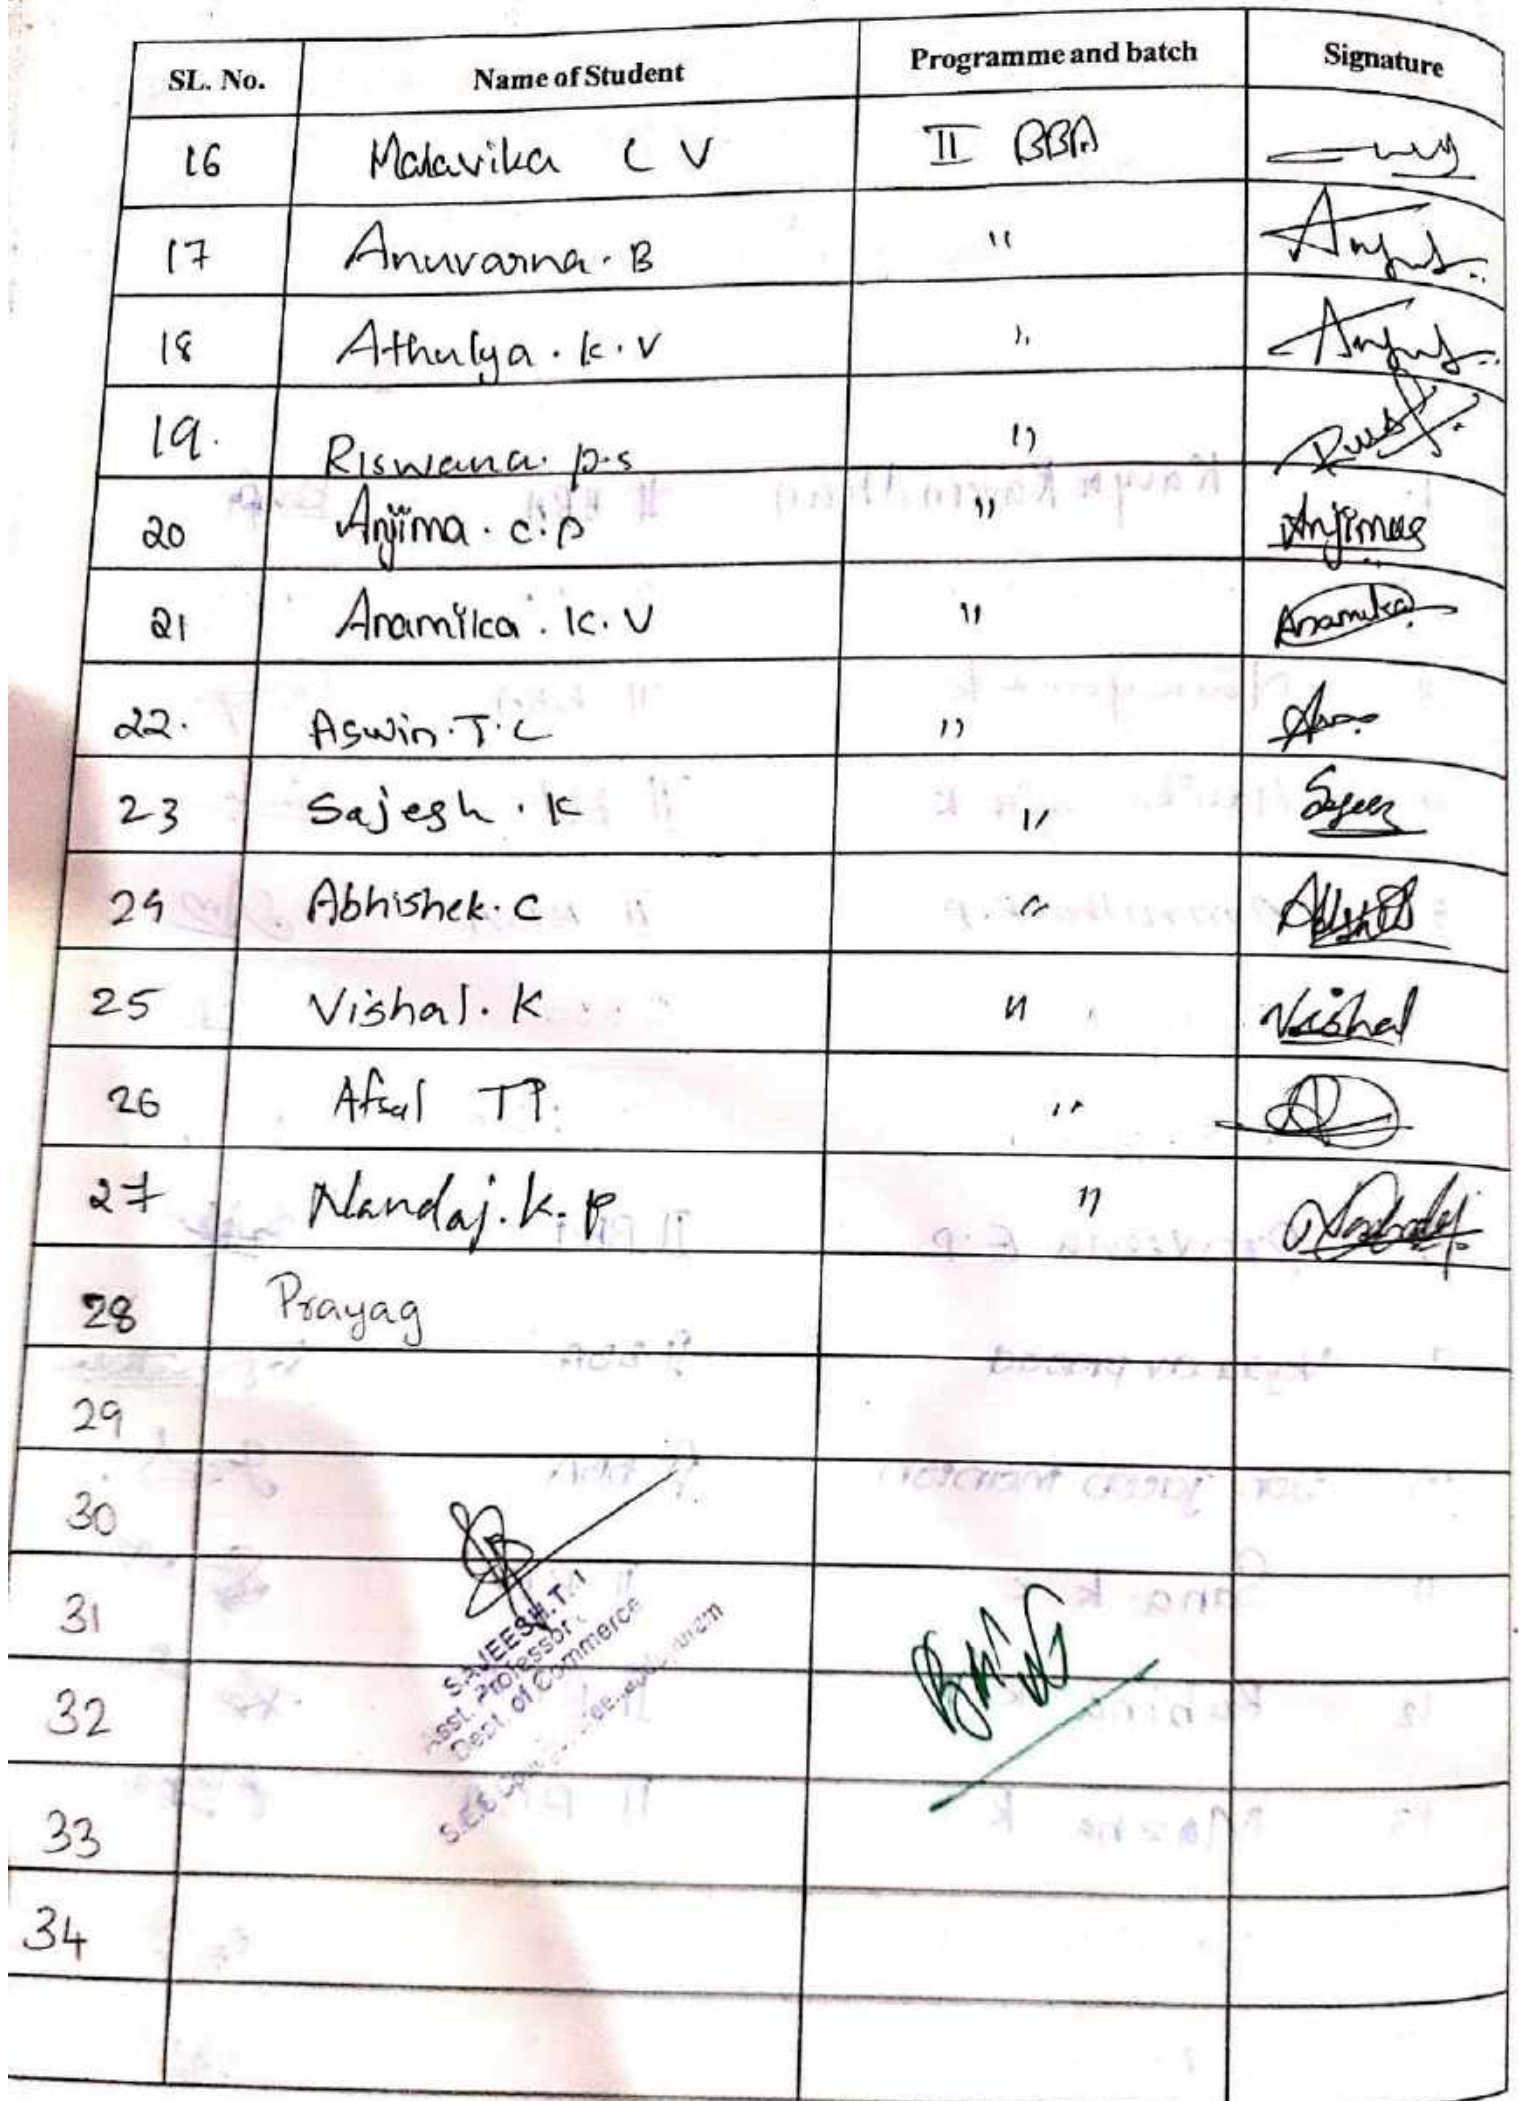 SL. No. Name of Student Programme and batch Signature
16 Malavika C V II BBA
17 Anuvarna. B "
18 Athulya. K. V "
19. Riswana. P.S "
20 Anjima. C. P " Anjima
21 Anamika. K. V " Anamika
22. Aswin. T. C "
23 Sajesh. K "
24 Abhishek. C "
25 Vishal. K " Vishal
26 Afsal TP. "
27 Nandaj. K. P " Nandaj
28 Prayag
29
30
31
SAJEESH.T.
Asst. Professor
Dept. of Commerce
32
33
34